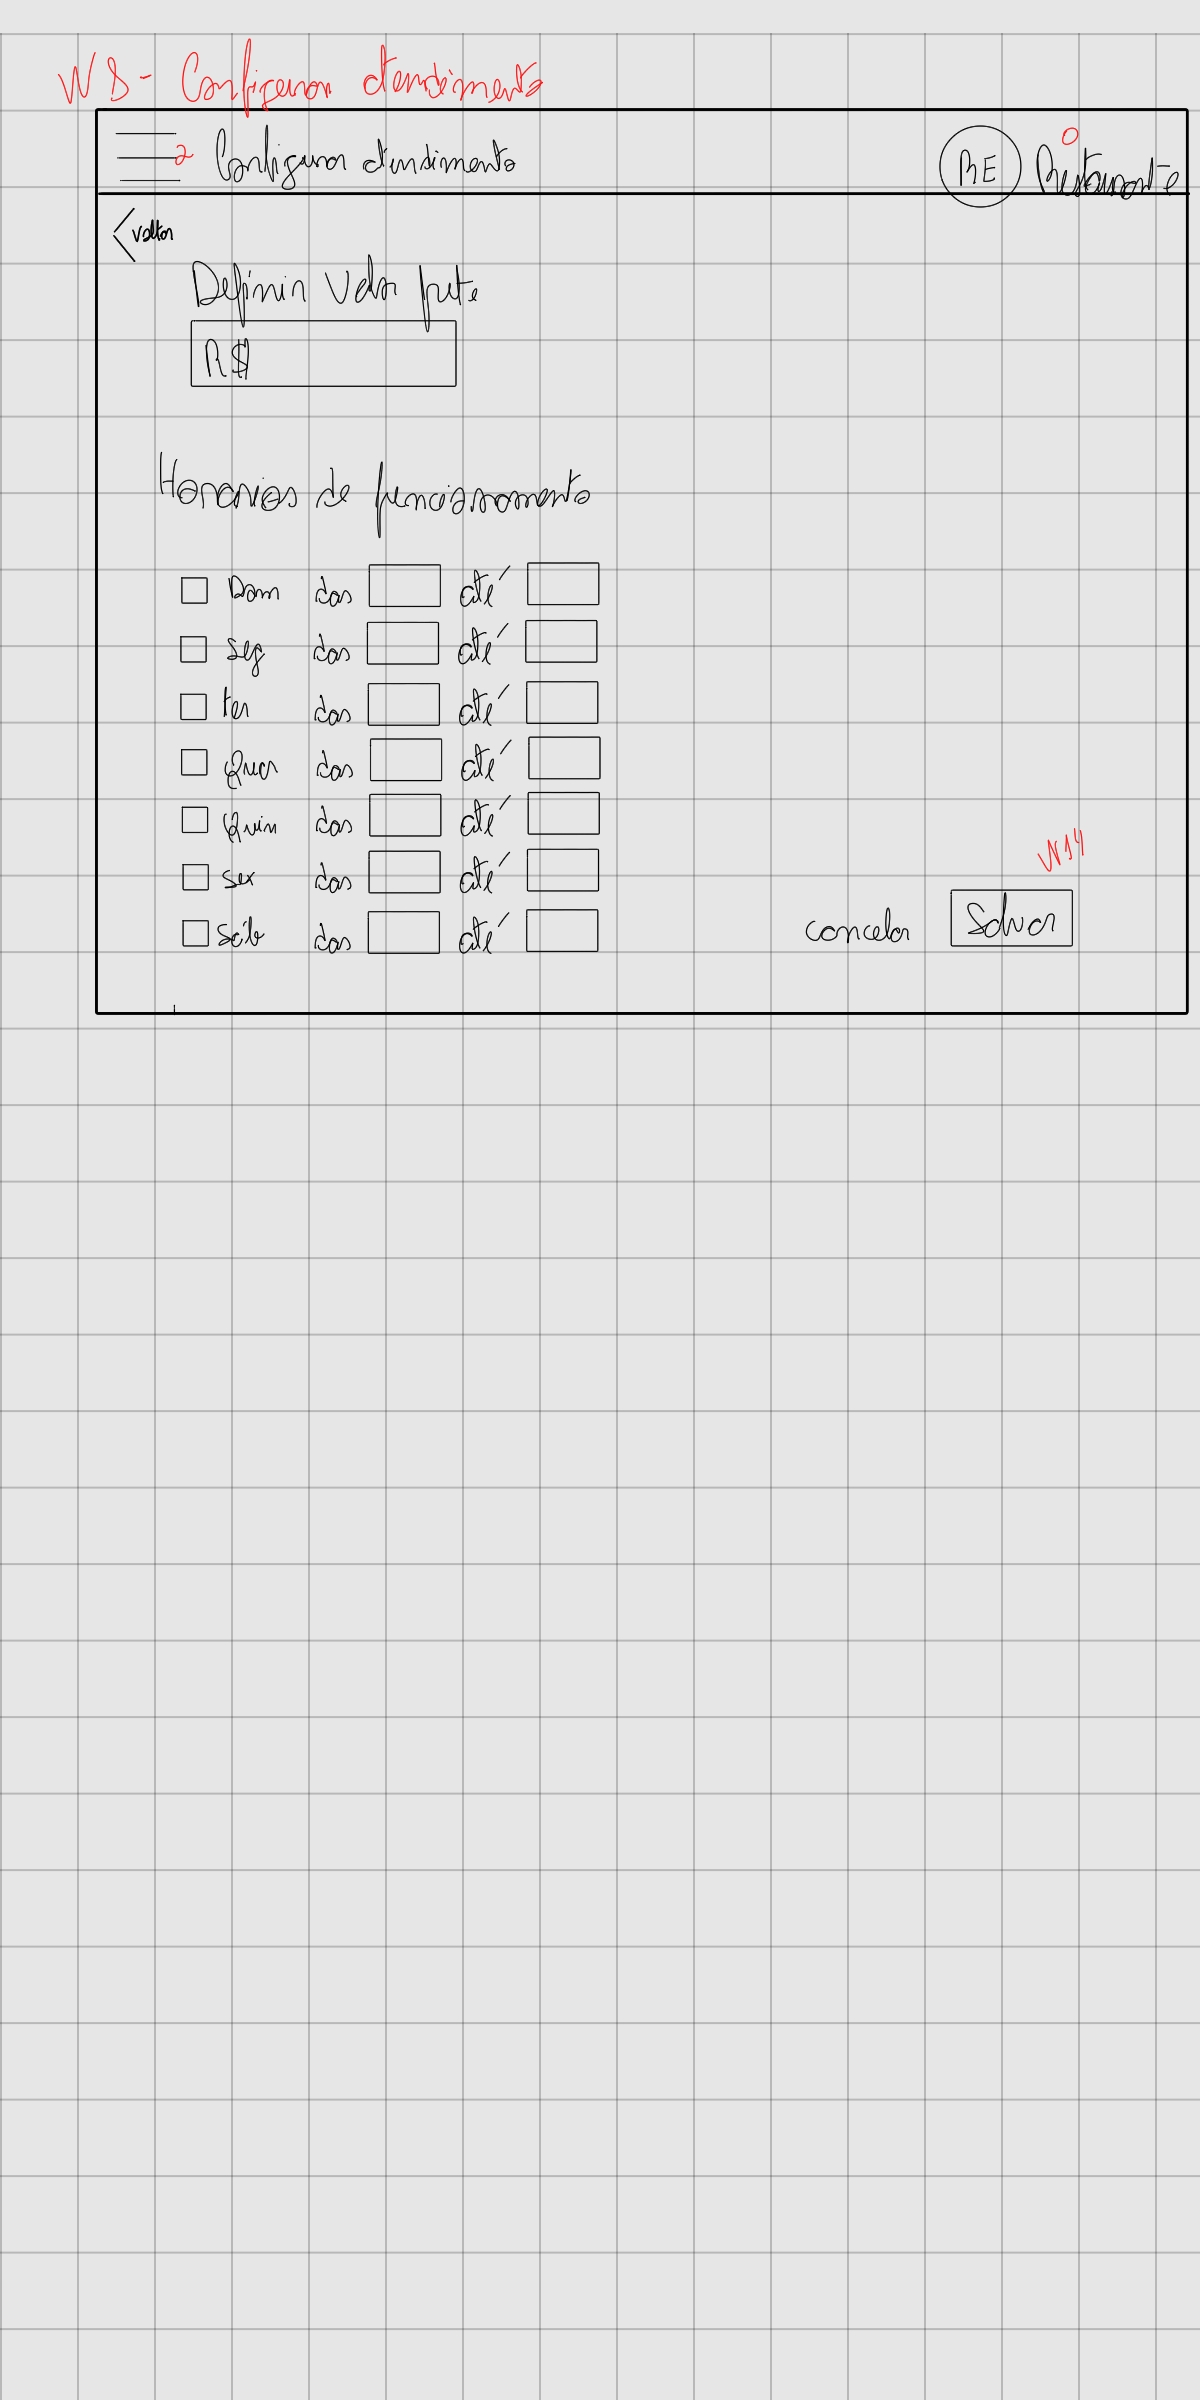 W8 - Configurar atendimento
2 Configurar atendimento RE Restaurante
0
< voltar
Definir Valor frete
R$
Horarios de funcionamento
Dom das até
seg das até
ter das até
Quar das até
Quin das até
sex das até
Sáb das até
W14
cancelar Salvar